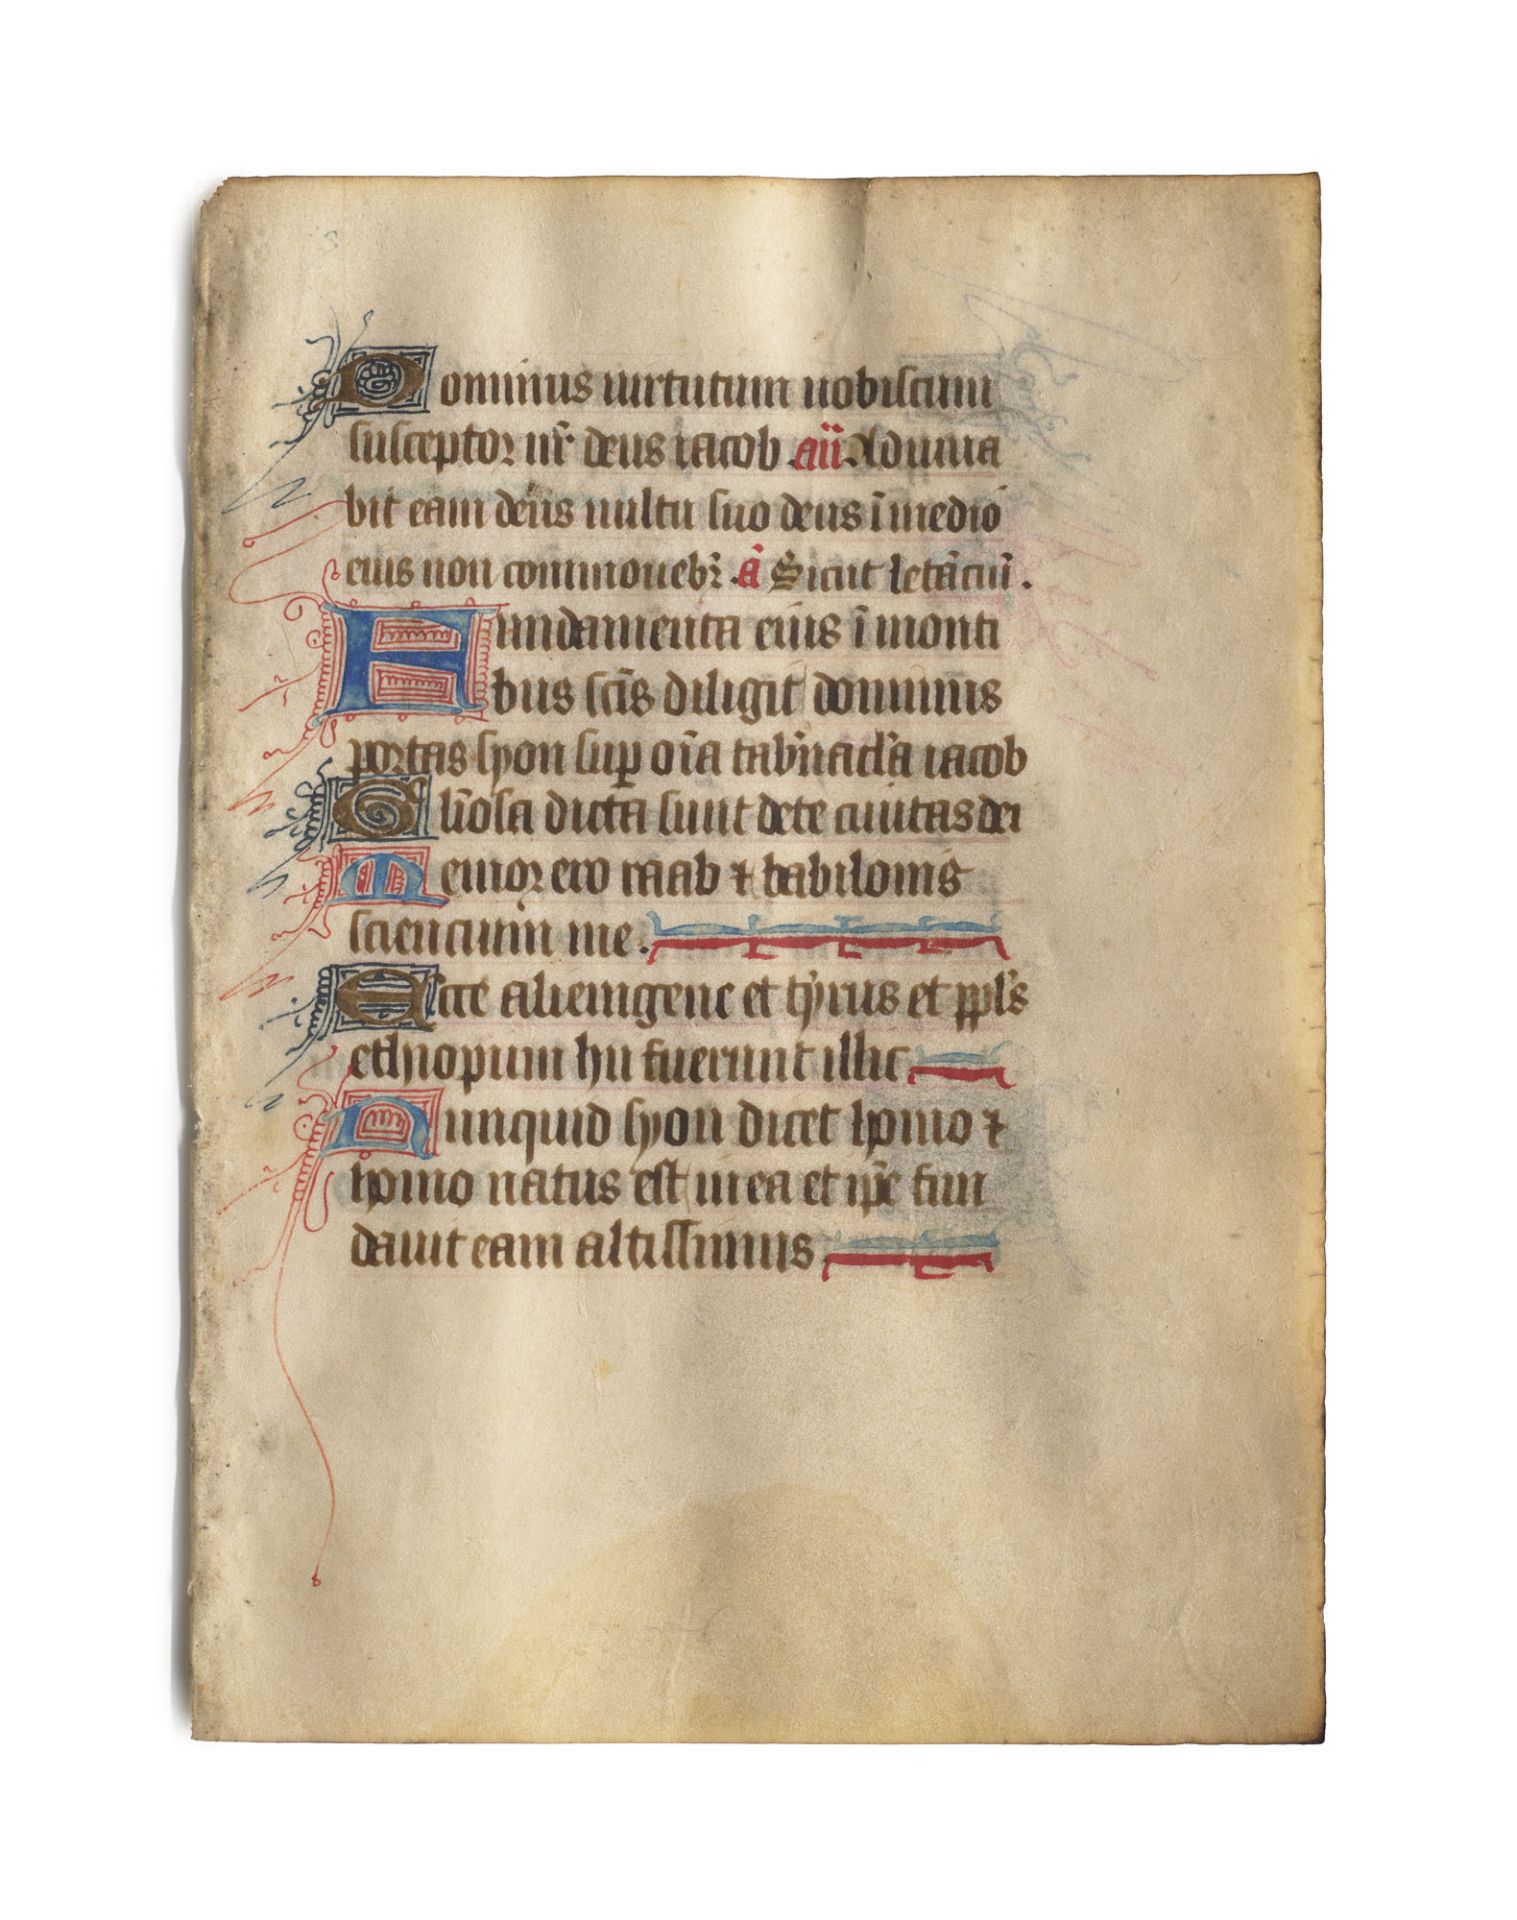 Dominus uirtutum nobiscum
susceptor nr̄ deus iacob. an̄ Adiuua
bit eam deus uultu suo deus ī medio
eius non commouebr̄. ā Sicut letāciū.
Fundamenta eius ī monti
bus scīs diligit dominus
portas syon sup̱ oīa tab̄nacl̄a iacob
Gl̄iosa dicta sunt de te ciuitas dei
Memor ero raab ⁊ babilonis
scienciū me.
Ecce alienigene et tyrus et ppl̄s
ethiopum hii fuerunt illic
Nunquid syon dicet homo ⁊
homo natus est in ea et ip̄e fun
dauit eam altissimus